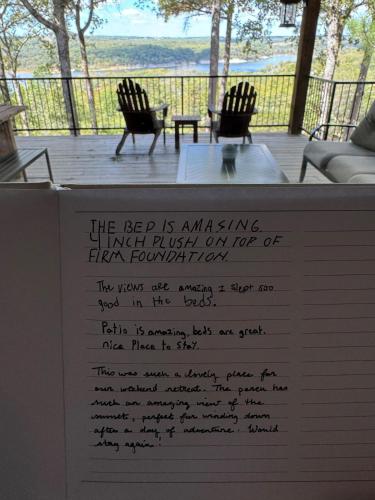 THE BED IS AMASING.
4 INCH PLUSH ON TOP OF
FIRM FOUNDATION.
The views are amazing I slept soo
good in the beds.
Patio is amazing, beds are great.
nice Place to stay.
This was such a lovely place for
our weekend retreat. The porch has
such an amazing view of the
sunset, perfect for winding down
after a day of adventure. Would
stay again!